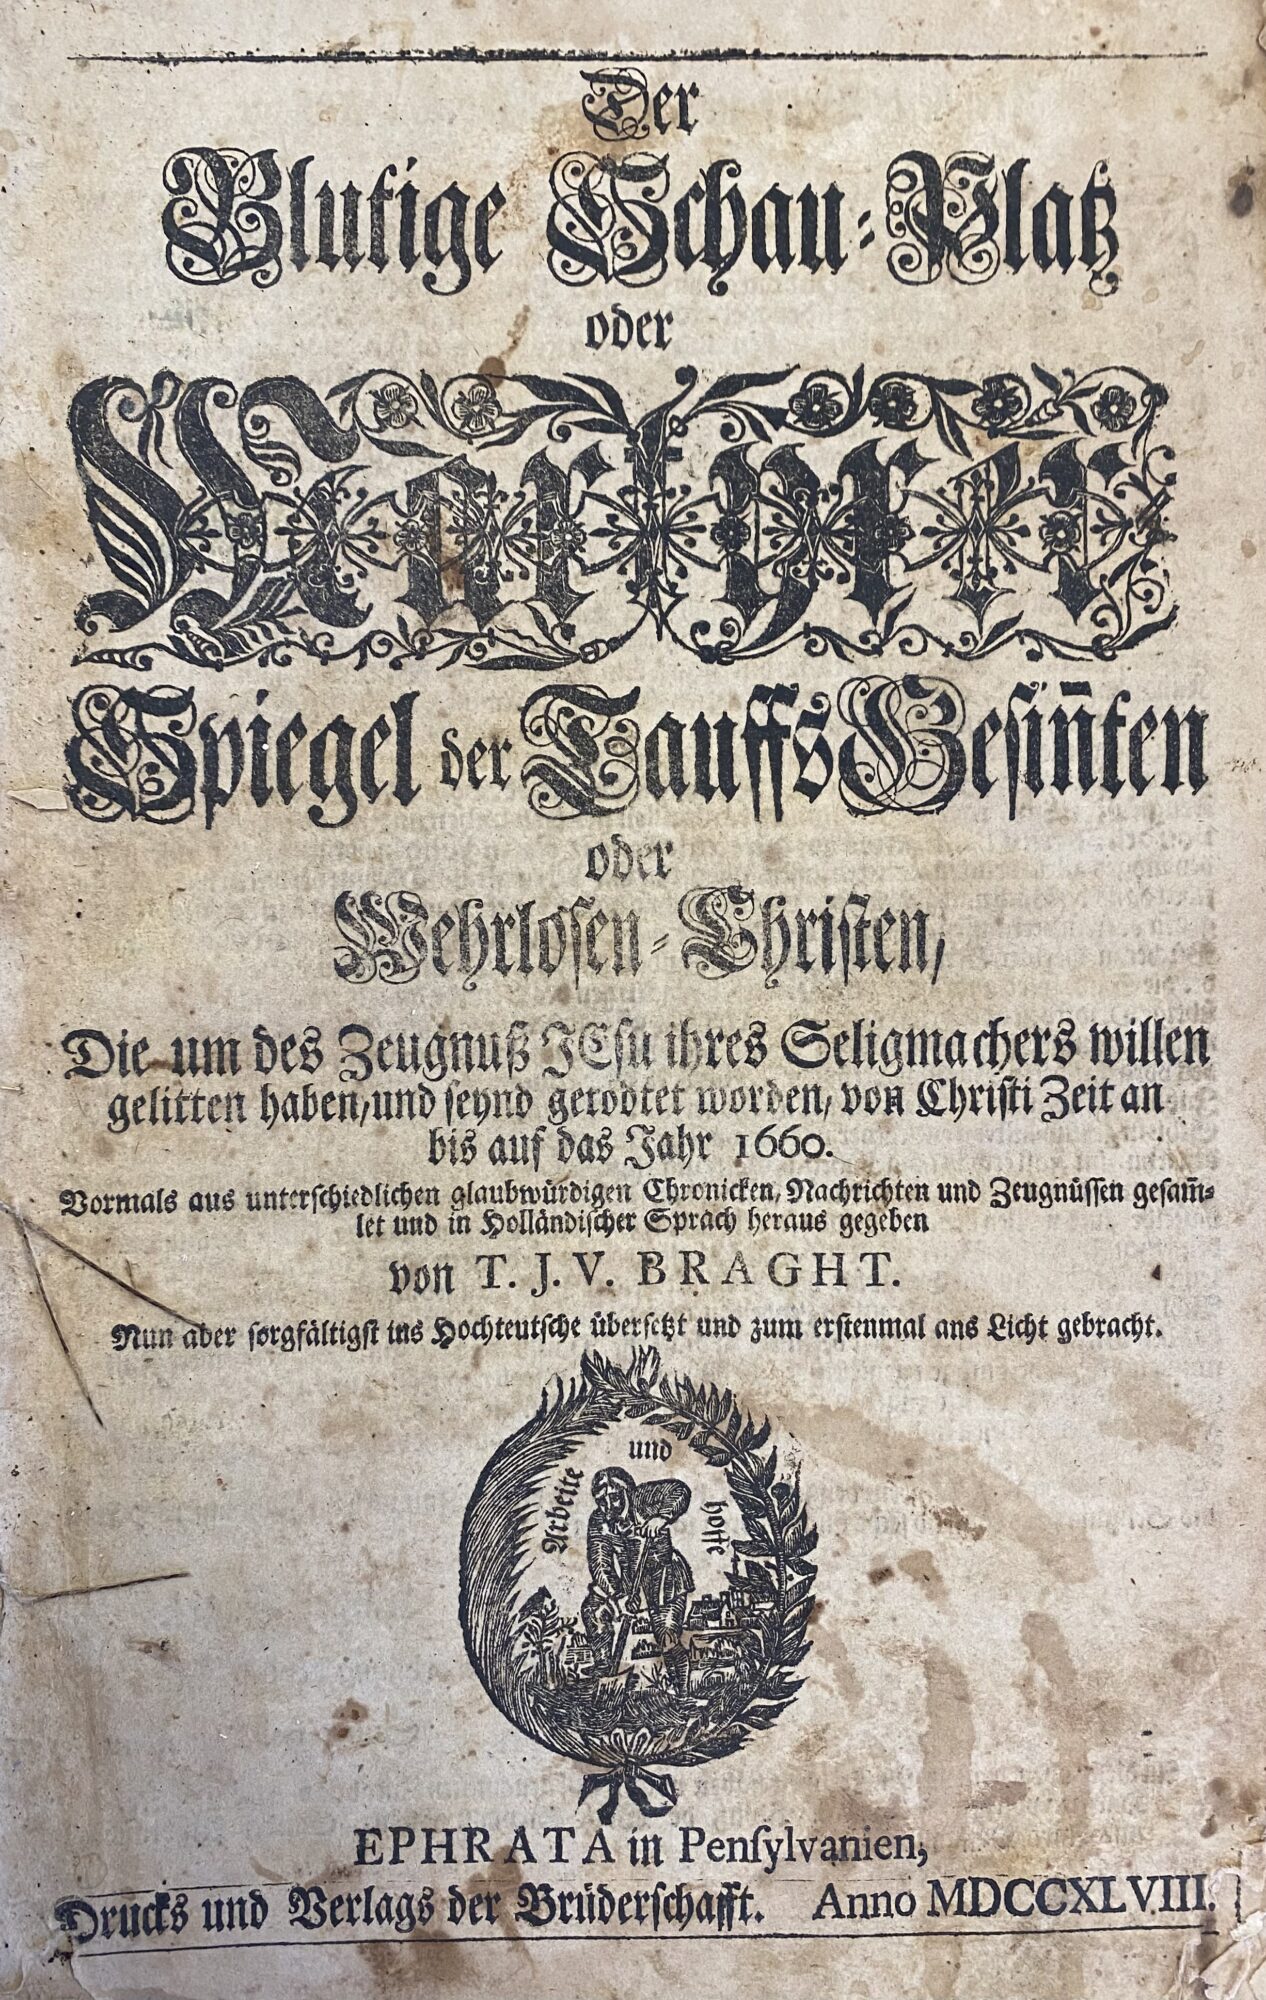 Der
Blutige Schau-Platz
oder
Martyrer
Spiegel der Tauffs Gesiñten
oder
Wehrlosen-Christen,
Die um des Zeugnuß JEsu ihres Seligmachers willen
gelitten haben, und seynd getödtet worden, von Christi Zeit an
bis auf das Jahr 1660.
Vormals aus unterschiedlichen glaubwürdigen Chronicken, Nachrichten und Zeugnüssen gesam̃-
let und in Holländischer Sprach heraus gegeben
von T. J. V. BRAGHT.
Nun aber sorgfältigst ins Hochteutsche übersetzt und zum erstenmal ans Licht gebracht.
Arbeite und hoffe
EPHRATA in Penſylvanien,
Drucks und Verlags der Brüderschafft. Anno MDCCXLVIII.